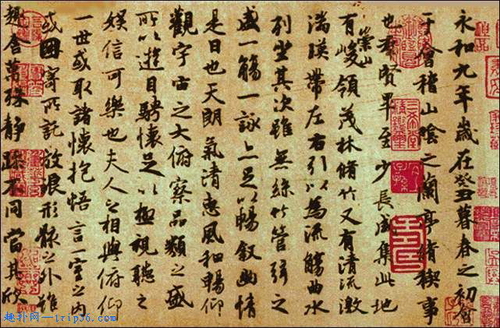 永和九年歲在癸丑暮春之初會
于會稽山陰之蘭亭脩稧事
也群賢畢至少長咸集此地
有崇山峻領茂林脩竹又有清流激
湍暎帶左右引以為流觴曲水
列坐其次雖無絲竹管弦之
盛一觴一詠亦足以暢敘幽情
是日也天朗氣清惠風和暢仰
觀宇宙之大俯察品類之盛
所以遊目騁懷足以極視聽之
娛信可樂也夫人之相與俯仰
一世或取諸懷抱悟言一室之內
或因寄所託放浪形骸之外雖
趣舍萬殊靜躁不同當其欣
趣扑网-trip36.com